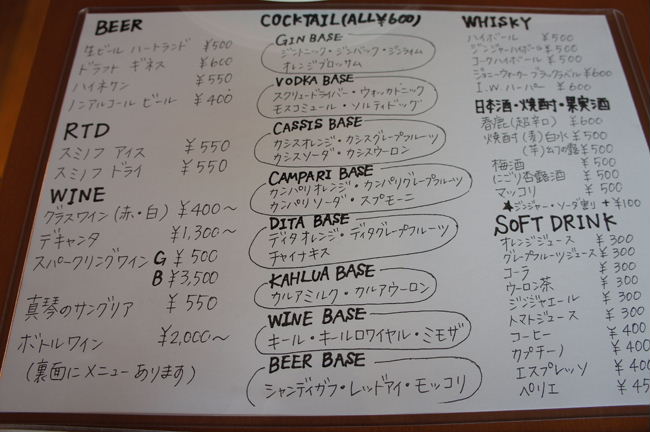 BEER
生ビール ハートランド ¥500
ドラフト ギネス ¥600
ハイネケン ¥550
ノンアルコール ビール ¥400
RTD
スミノフ アイス ¥550
スミノフ ドライ ¥550
WINE
グラスワイン (赤・白) ¥400〜
デキャンタ ¥1,300〜
スパークリングワイン G ¥500
B ¥3,500
真琴のサングリア ¥550
ボトルワイン ¥2,000〜
(裏面にメニューあります)
COCKTAIL(ALL¥600)
GIN BASE
ジントニック・ジンバック・ジンライム
オレンジブロッサム
VODKA BASE
スクリュードライバー・ウォッカトニック
モスコミュール・ソルティドッグ
CASSIS BASE
カシスオレンジ・カシスグレープフルーツ
カシスソーダ・カシスウーロン
CAMPARI BASE
カンパリオレンジ・カンパリグレープフルーツ
カンパリソーダ・スプモーニ
DITA BASE
ディタオレンジ・ディタグレープフルーツ
チャイナキス
KAHLUA BASE
カルアミルク・カルアウーロン
WINE BASE
キール・キールロワイヤル・ミモザ
BEER BASE
シャンディガフ・レッドアイ・モッコリ
WHISKY
ハイボール ¥500
ジンジャーハイボール ¥500
コークハイボール ¥500
ジョニーウォーカーブラックラベル ¥600
I.W.ハーパー ¥600
日本酒・焼酎・果実酒
春鹿(超辛口) ¥600
焼酎(麦)白水 ¥500
(芋)幻の露 ¥500
梅酒 ¥500
(にごり)杏露酒 ¥500
マッコリ ¥500
★ジンジャー・ソーダ割り +¥100
SOFT DRINK
オレンジジュース ¥300
グレープフルーツジュース ¥300
コーラ ¥300
ウーロン茶 ¥300
ジンジャエール ¥300
トマトジュース ¥300
コーヒー ¥400
カプチーノ ¥400
エスプレッソ ¥400
ペリエ ¥45